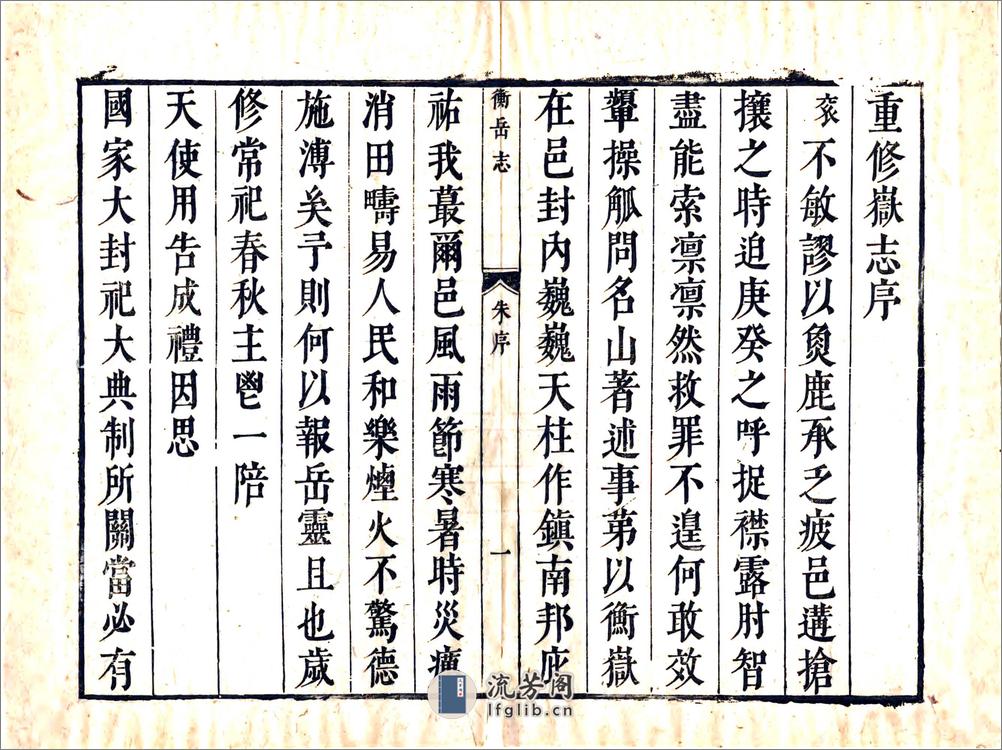 重修嶽志序
衮不敏謬以鹿承乏疲邑遘搶
攘之時迫庚癸之呼捉襟露肘智
盡能索凛凛然救罪不遑何敢效
顰操觚問名山著述事苐以衡嶽
在邑封內巍巍天柱作鎮南邦庇
衡岳志
朱序
一
祐我蕞爾邑風雨節寒暑時災癘
消田疇易人民和樂煙火不驚德
施溥矣予則何以報岳靈且也歲
修常祀春秋主鬯一陪
天使用告成禮因思
國家大封祀大典制所關當必有
流芳阁
lfglib.cn